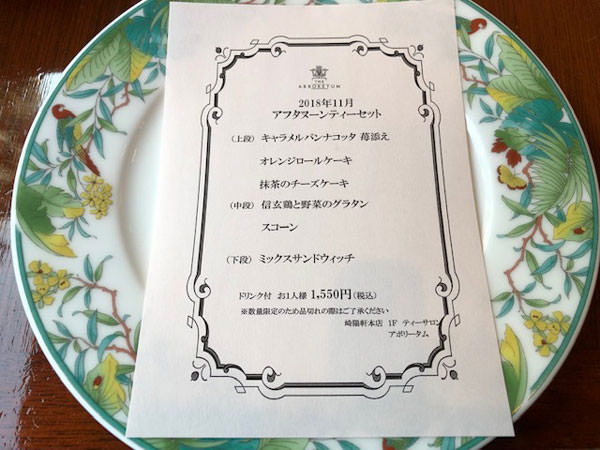 THE
ARBORETUM
2018年11月
アフタヌーンティーセット
(上段) キャラメルパンナコッタ 苺添え
オレンジロールケーキ
抹茶のチーズケーキ
(中段) 信玄鶏と野菜のグラタン
スコーン
(下段) ミックスサンドウィッチ
ドリンク付 お1人様 1,550円(税込)
※数量限定のため品切れの際はご了承ください
崎陽軒本店 1F ティーサロン
アボリータム